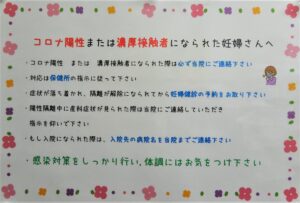 コロナ陽性または濃厚接触者になられた妊婦さんへ
・コロナ陽性 または 濃厚接触者になられた際は必ず当院にご連絡下さい
・対応は保健所の指示に従って下さい
・症状が落ち着かれ、隔離が解除になられてから妊婦健診の予約をお取り下さい
・陽性隔離中に産科症状が見られた際は当院にご連絡していただき
指示を仰いで下さい
・もし入院になられた際は、入院先の病院名を当院までご連絡下さい
・感染対策をしっかり行い、体調にはお気をつけ下さい